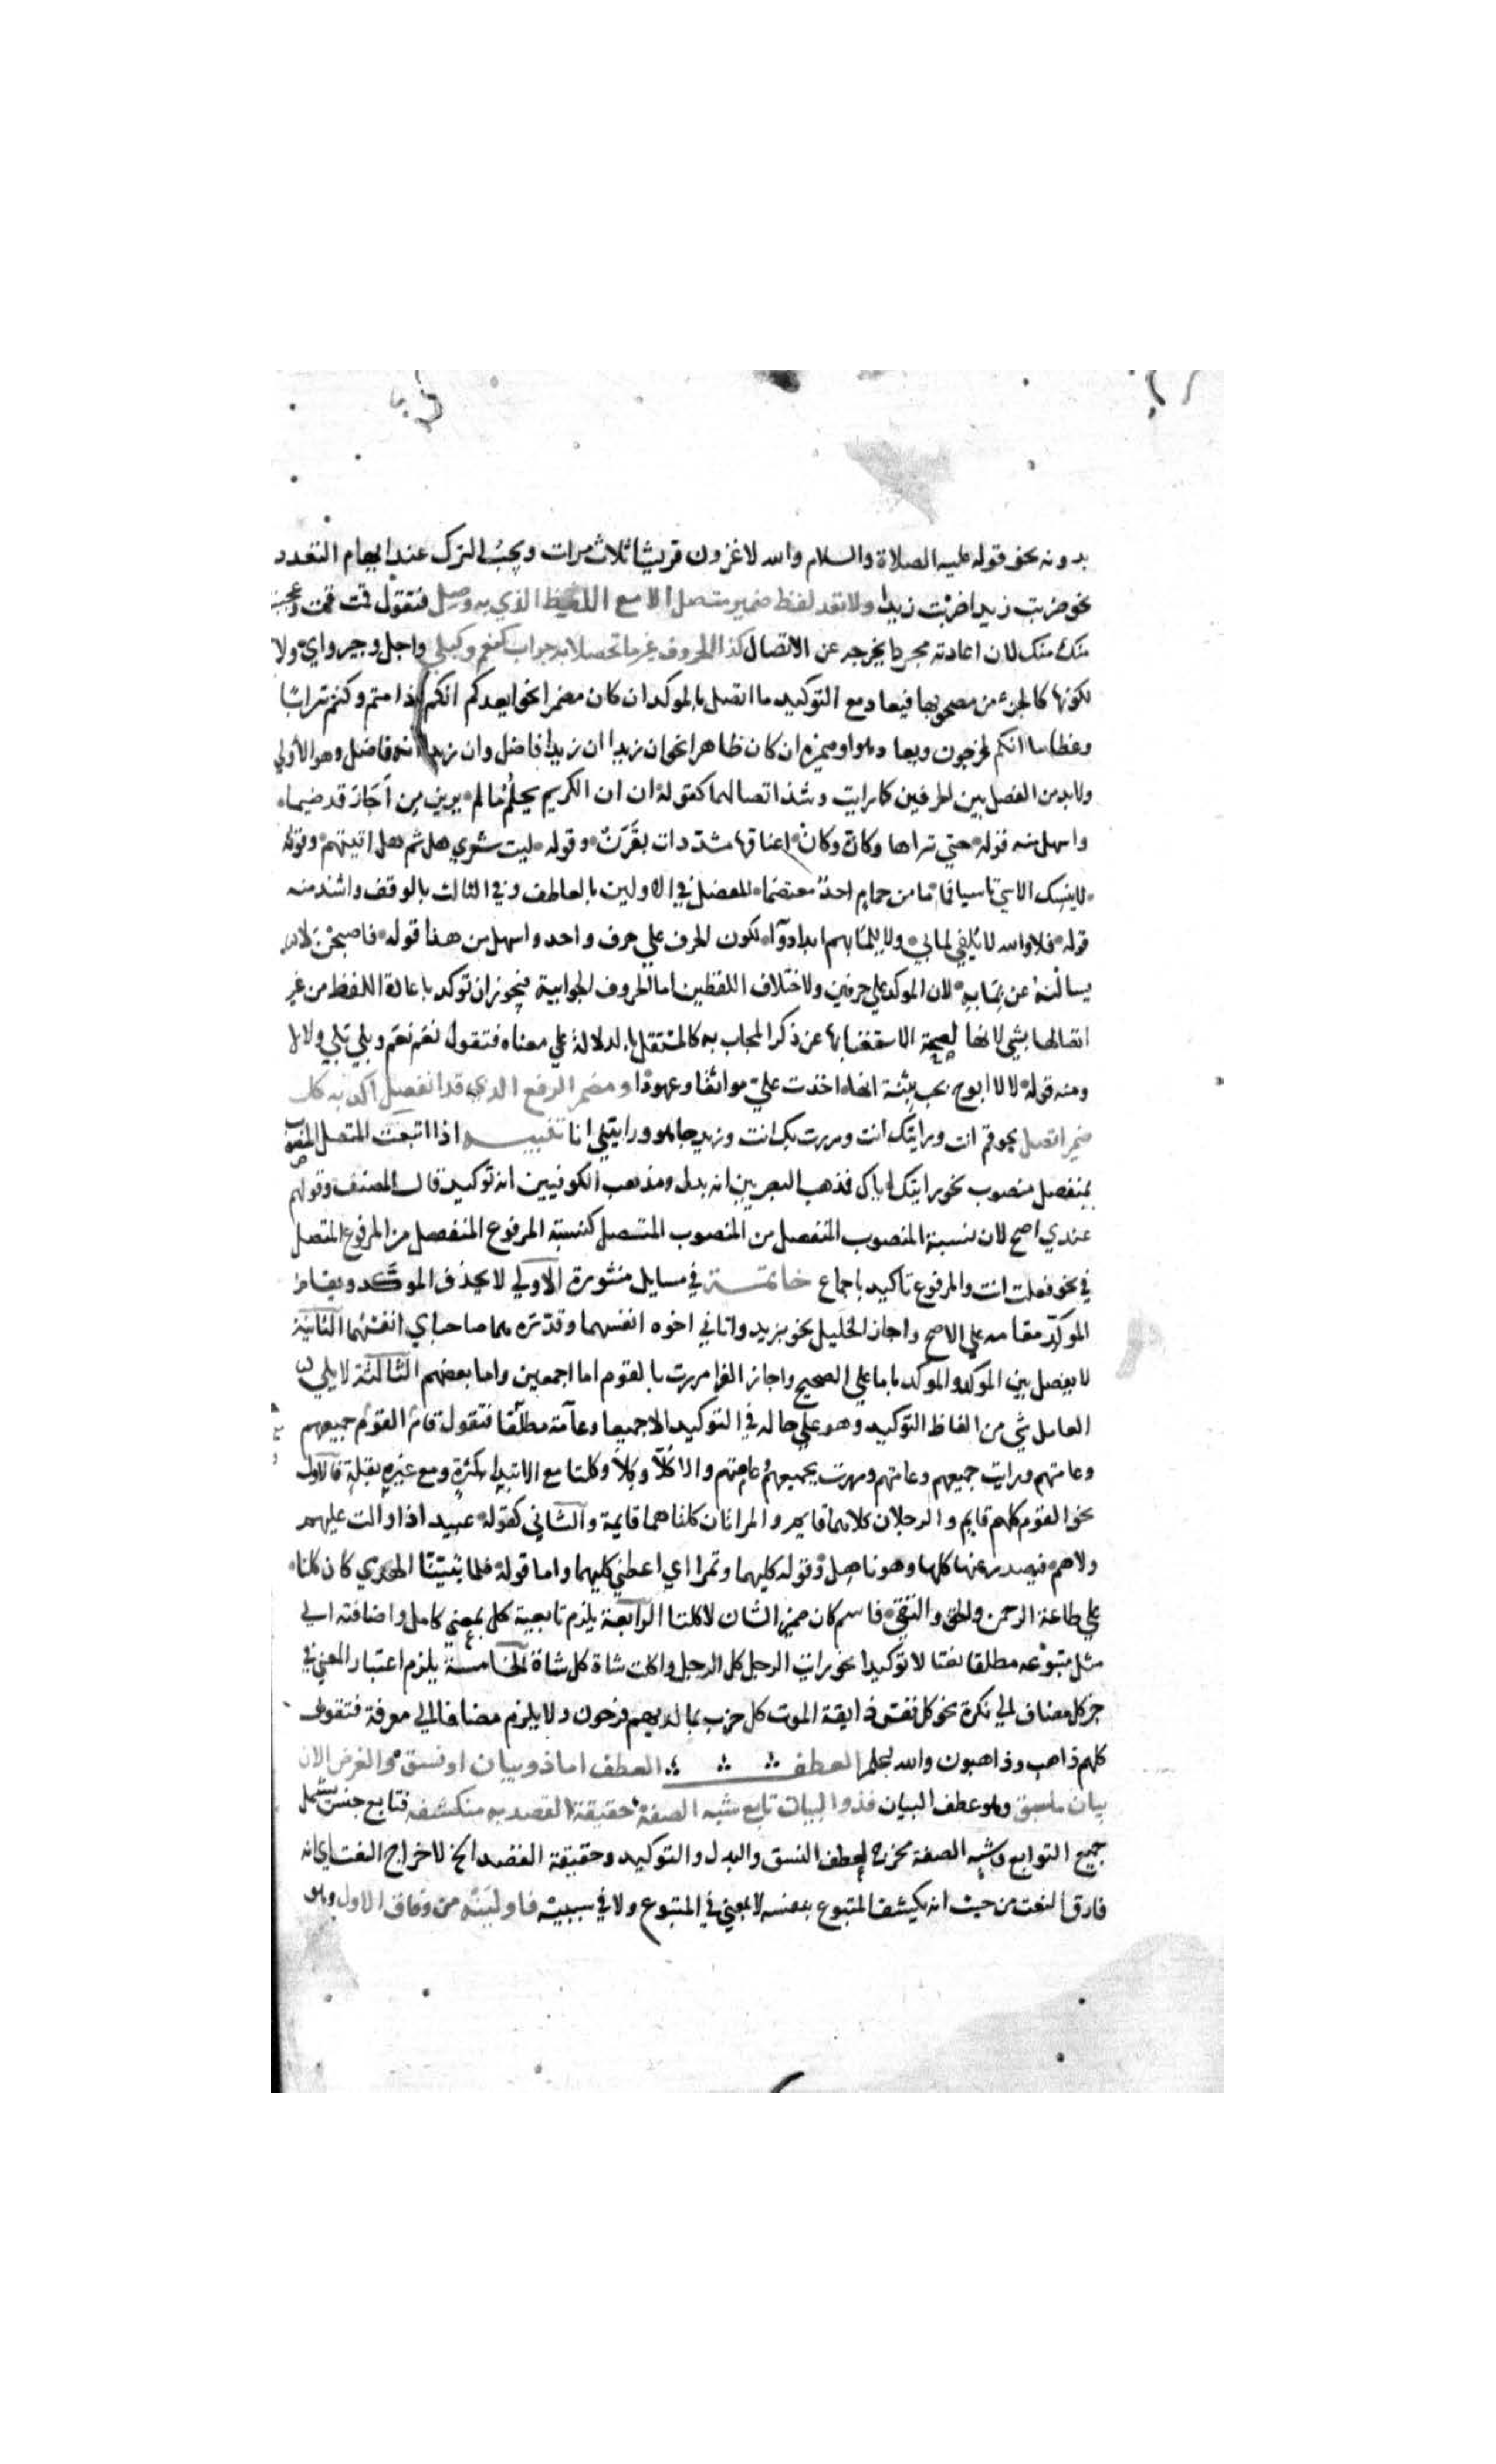 بدونه نحو قوله عليه الصلاة والسلام والله لاغزون قريشا ثلاث مرات ويجب الترك عند ايهام التعدد
نحو ضربت زيدا ضربت زيدا ولا تعد لفظ ضمير متصل الا مع اللفظ الذي به وصل فتقول قمت قمت وعجبت
منك منك لان اعادته مجردا يخرجه عن الاتصال كذا الحروف غير ما تحصلا به جواب كنعم وكبلي واجل وجير واي ولا
لكونها كالجزء من مصحوبها فيعاد مع التوكيد ما اتصل بالموكد ان كان مضمرا نحو ايعدكم انكم اذا متم وكنتم ترابا
وعظاما انكم مخرجون ويعاد هو او ضميره ان كان ظاهرا نحو ان زيدا ان زيدا فاضل وان زيدا انه فاضل وهو الاولي
ولا بد من الفصل بين الحرفين كما رايت وشذ اتصالهما كقوله ان ان الكريم يحلم ما لم يرين من اجاز قد ضيما
واسهل منه قوله حتي تراها وكان وكان اعناقها مشددات بقرن وقوله ليت شعري هل ثم هل اتينهم وقوله
لا ينسك الاسي تاسيا فما ما من حمام احد معتصما للفصل في الاولين بالعاطف وفي الثالث بالوقف واشذ منه
قوله فلا والله لا يلفي لما بي ولا للما بهم ابدا دوآ لكون الحرف علي حرف واحد واسهل من هذا قوله فاصبحن لا
يسالنه عن بما به لان الموكد علي حرفين ولاختلاف اللفظين اما الحروف الجوابية فيجوز ان توكد باعادة اللفظ من غير
اتصالها بشي لانها لصحة الاستغنا بها عن ذكر المجاب به كالمستقل بالدلالة علي معناه فتقول نعم نعم وبلي بلي ولا لا
ومنه قوله لا لا ابوح بحب بثنة انها اخذت علي مواثقا وعهودا ومضمر الرفع الذي قد انفصل اكد به كل
ضمير اتصل نحو قم انت ورايتك انت ومررت بك انت وزيد جا هو ورايتني انا تنبيــــه اذا اتبعت المتصل المنصوب
بمنفصل منصوب نحو رايتك اياك فمذهب البصريين انه بدل ومذهب الكوفيين انه توكيد قال المصنف وقولهم
عندي اصح لان نسبة المنصوب المنفصل من المنصوب المتصل كنسبة المرفوع المنفصل من المرفوع المتصل
في نحو فعلت انت والمرفوع تاكيد باجماع خاتمــة في مسايل منثورة الاولي لا يحذف الموكد ويقام
الموكد مقامه علي الاصح واجاز الخليل نحو بزيد واتاني اخوه انفسهما وقدره هما صاحباي انفسهما الثانية
لا يفصل بين الموكد والموكد باما علي الصحيح واجاز الفرا مررت بالقوم اما اجمعين واما بعضهم الثالثة لا يلي
العامل شي من الفاظ التوكيد وهو علي حاله في التوكيد الا جميعا وعامة مطلقا فتقول قام القوم جميعهم
وعامتهم ورايت جميعهم وعامتهم ومررت بجميعهم وعامتهم والا كلا وكلا وكلتا مع الابتدا بكثرة ومع غيره بقلة فالاول
نحو القوم كلهم قايم والرجلان كلاهما قايم والمراتان كلتاهما قايمة والثاني كقوله عبيد اذا والت عليهم
ولاهم فيصدر عنها كلها وهو ناهل وقوله كليهما وتمرا اي اعطني كليهما واما قوله فلما تبينا الهدي كان كلنا
علي طاعة الرحمن والحق والتقي فاسم كان ضمير الشان لا كلنا الرابعة يلزم تابعية كل بمعني كامل واضافته الي
مثل متبوعه مطلقا نعتا لا توكيدا نحو رايت الرجل كل الرجل واكلت شاة كل شاة الخامسة يلزم اعتبار المعني في
خبر كل مضاف الي نكرة نحو كل نفس ذايقة الموت كل حزب بما لديهم فرحون ولا يلزم مضافا الي معرفة فتقول
كلهم ذاهب وذاهبون والله اعلم العطف العطف اما ذو بيان او نسق والغرض الان
بيان ما سبق وهو عطف البيان فذو البيان تابع شبه الصفة حقيقة القصد به منكشفه فتابع جنس يشمل
جميع التوابع وشبه الصفة مخرج لعطف النسق والبدل والتوكيد وحقيقة القصد الخ لاخراج النعت اي انه
فارق النعت من حيث انه يكشف المتبوع بنفسه لا بمعني في المتبوع ولا في سببيه فاولينه من وفاق الاول وهو